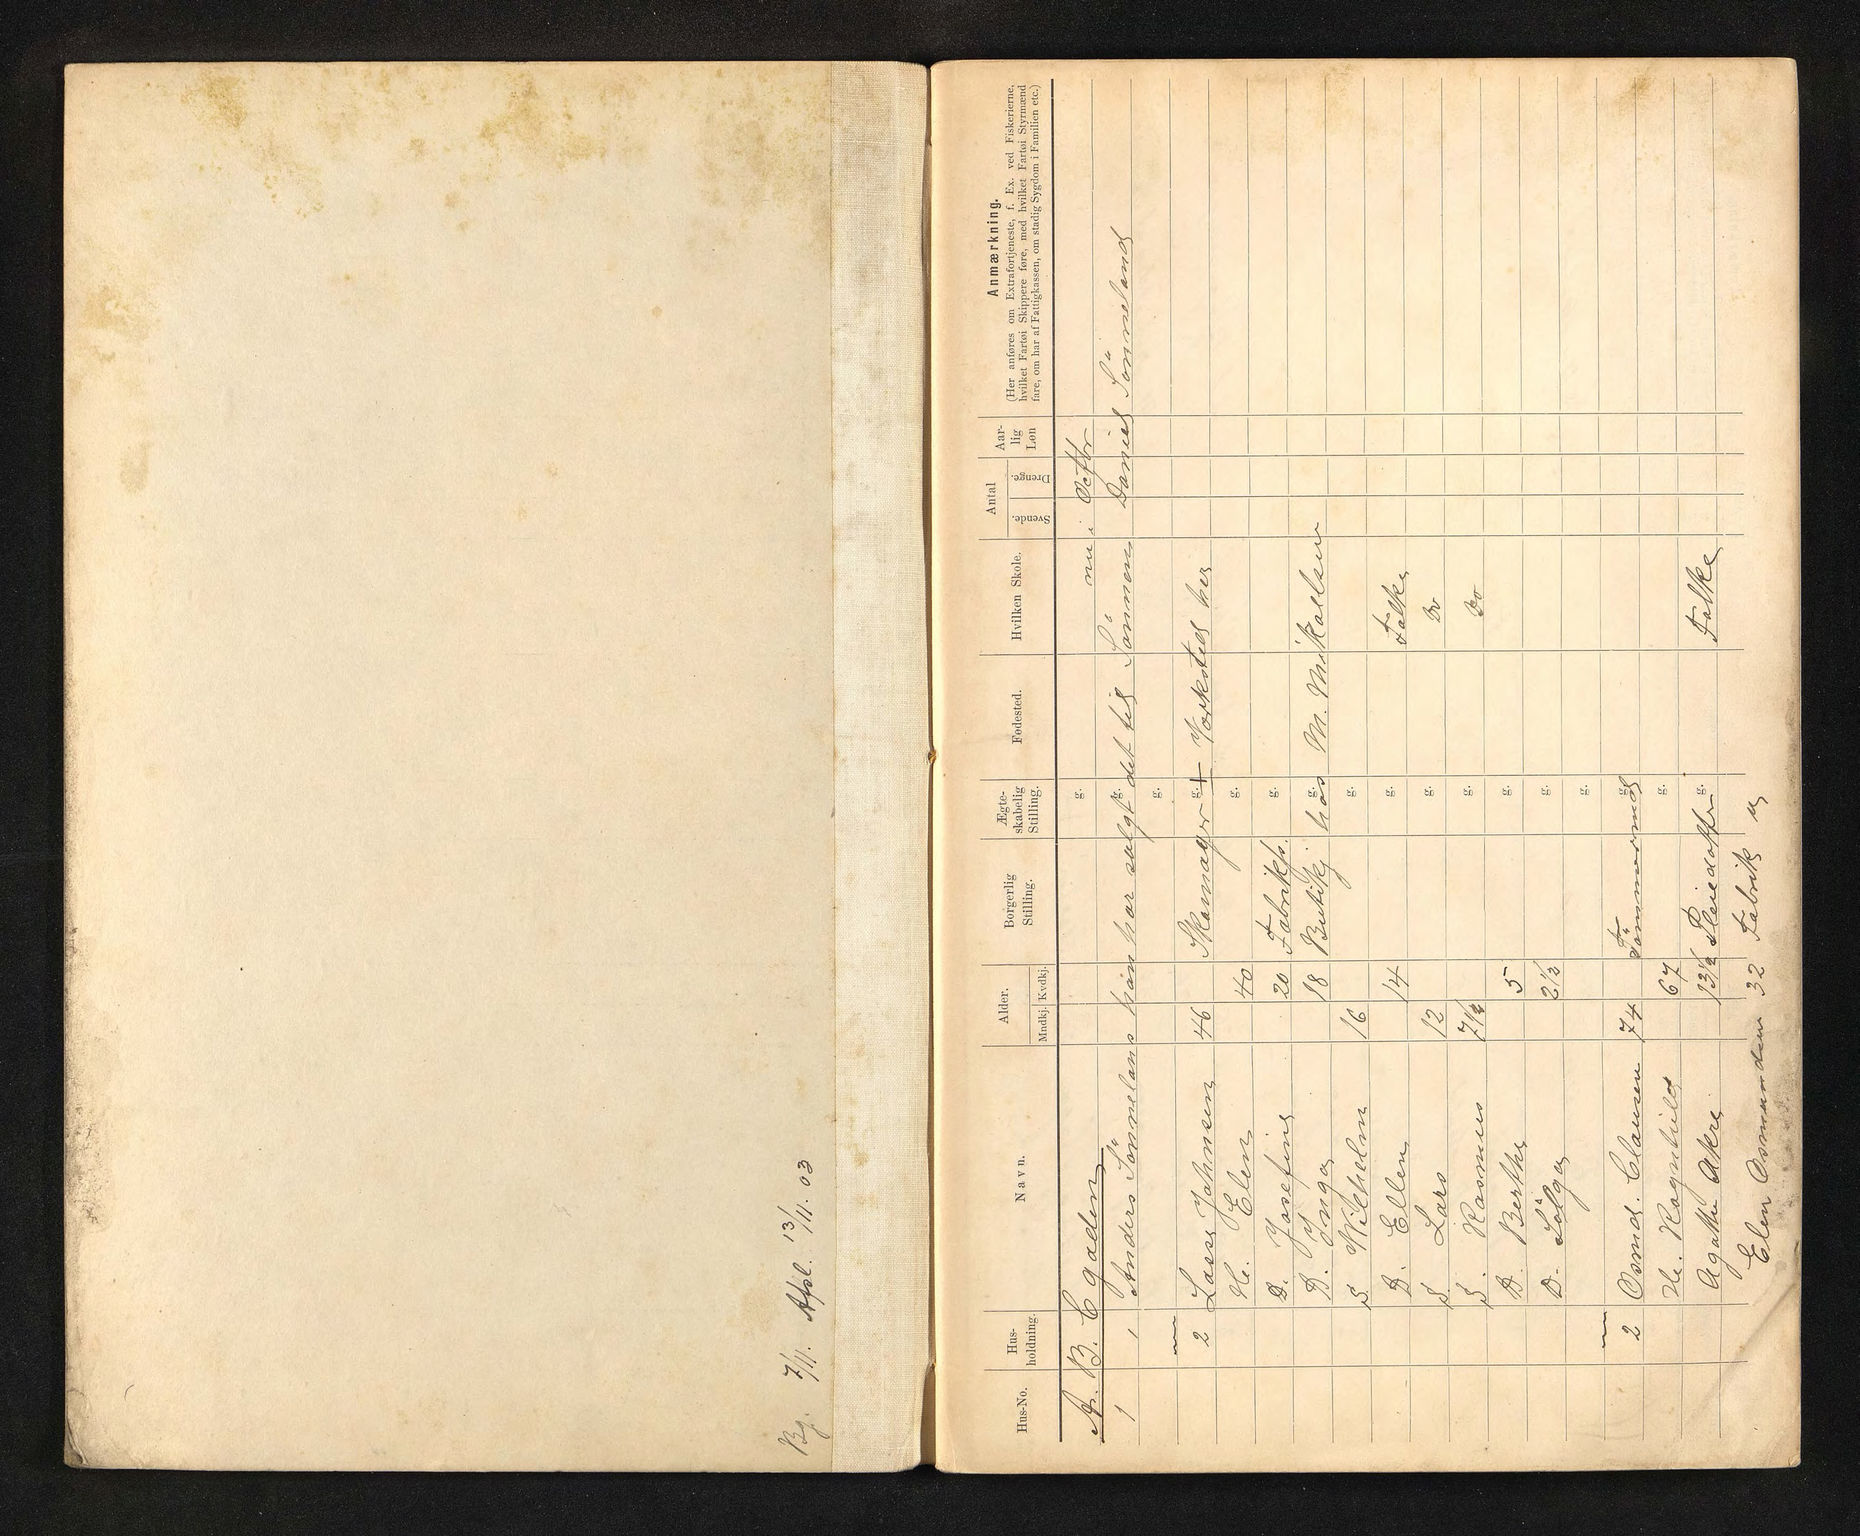 Bg. 7/11. Afsl. 13/11. 03
Hus-No.
Hus-
holdning.
Navn.
Alder.
Mndkj. Kvdkj.
Borgerlig
Stilling.
Ægte-
skabelig
Stilling.
Fødested.
Hvilken Skole.
Antal
Svende.
Drenge.
Aar-
lig
Løn
Anmærkning.
(Her anføres om Extrafortjeneste, f. Ex. ved Fiskerierne,
hvilket Fartøi Skippere føre, med hvilket Fartøi Styrmænd
fare, om har af Fattigkassen, om stadig Sygdom i Familien etc.)
A. B. C gaden g. nu i Octbr
1 1 Anders Sömmeland han har solgt det til g. Daniel Sömmeland
g.
2 Lasse Johnsen 46 Skomager g. + Værksted her
H. Elen 40 g.
D. Josefine 20 Fabrikp. g.
D. Inga 18 Butikj g. hos M. Mikalsen
S. Wilhelm 16 g.
D. Ellen 14 g. Folke
S. Lars 12 g. Do
S. Rasmus 7½ g. Do
D. Berthe 5 g.
D. Solga 2½ g.
g.
2 Osmd. Clausen 74 Tömmermd g.
H. Ragnhild 67 g.
Agathe Akre 13½ Pleiedatter g. Folke
Elen Osmundsen 32 Fabrik u